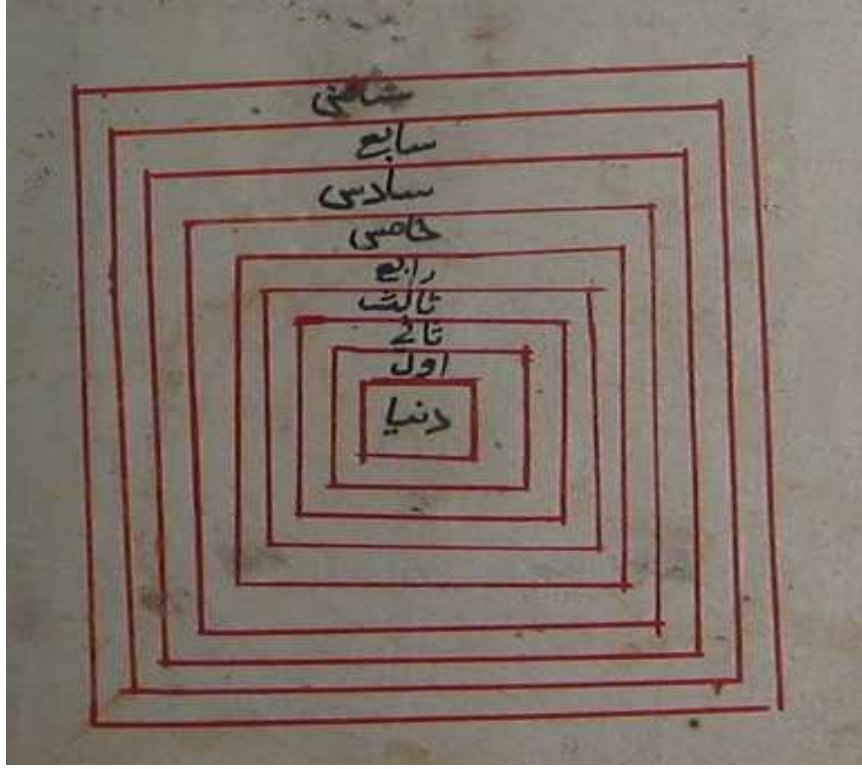 ثامن
سابع
سادس
خامس
رابع
ثالث
ثاني
اول
دنيا